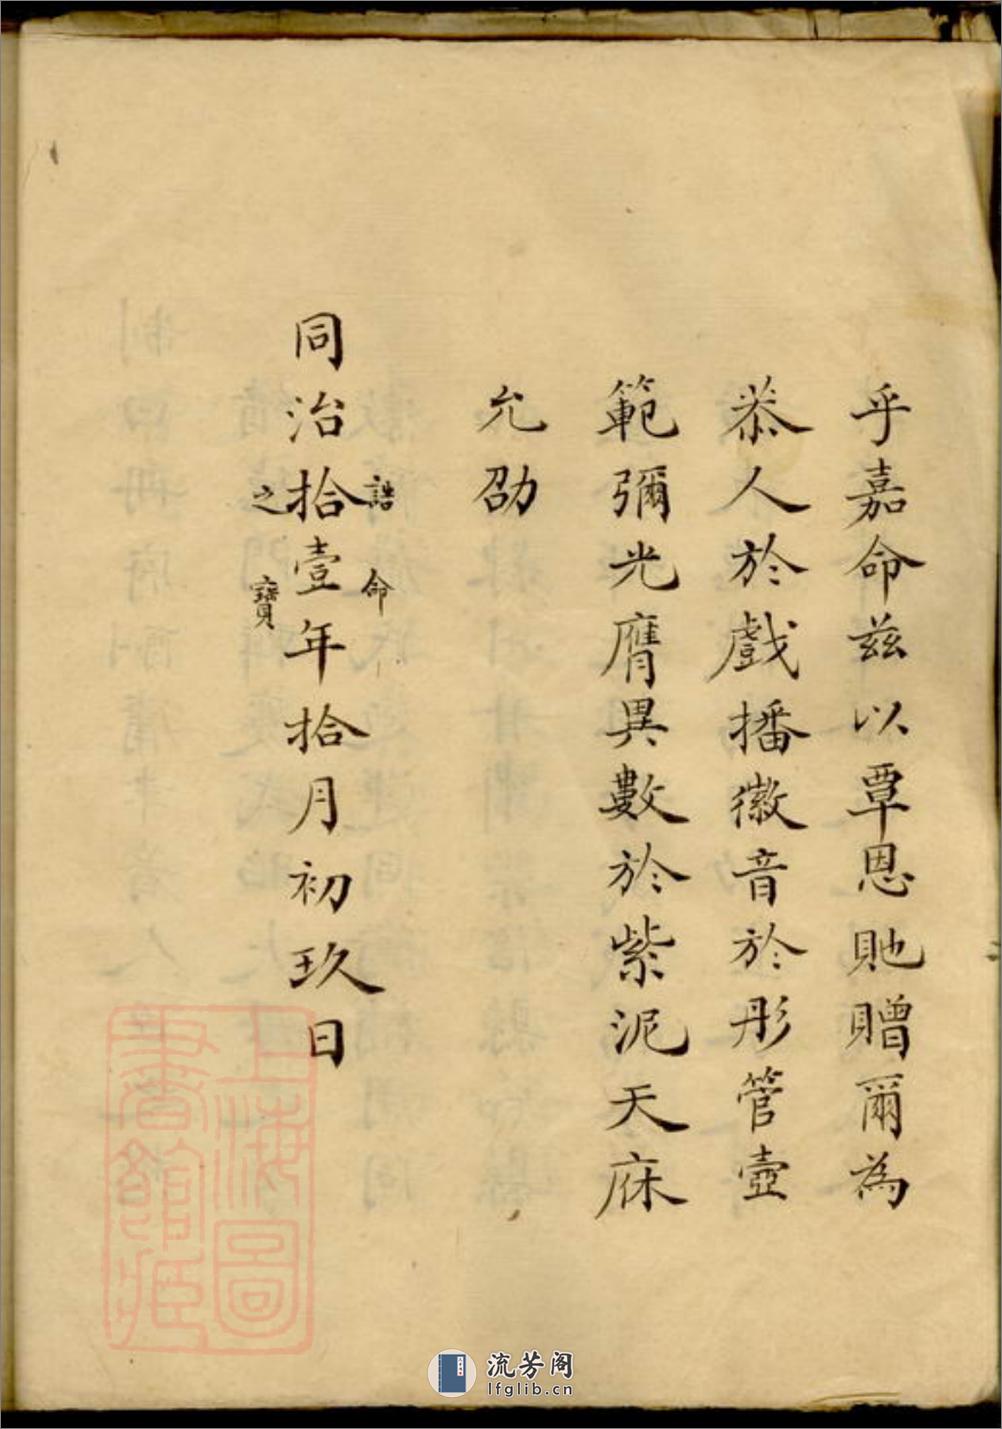 乎嘉命茲以覃恩貤贈爾為
恭人於戲播徽音於彤管壼
範彌光膺異數於紫泥天庥
允劭
誥命
同治拾壹年拾月初玖日
之寶
上海圖
書館藏
流芳阁
lfglib.cn